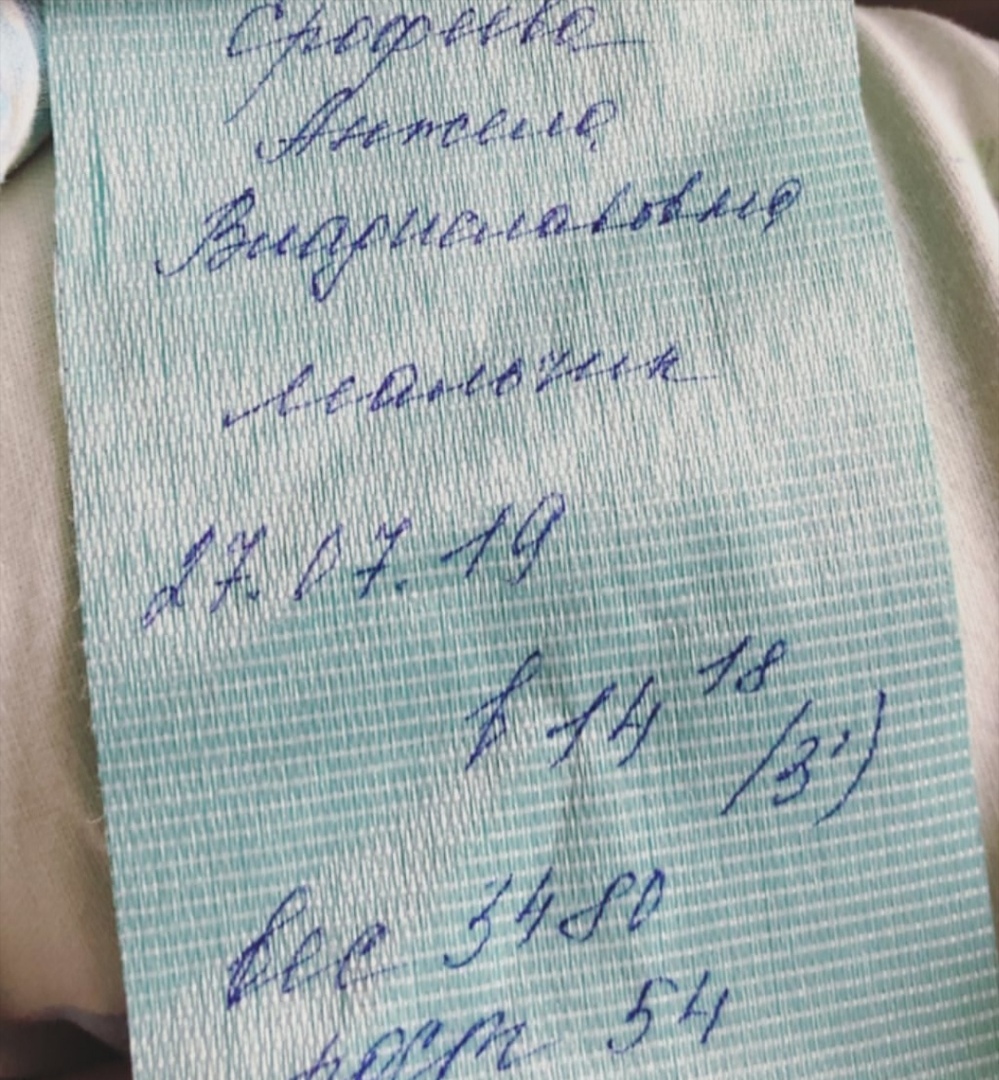 Ерофеева
Анжела
Владиславовна
мальчик
27.07.19
в 14 18
(3')
вес 3480
рост 54